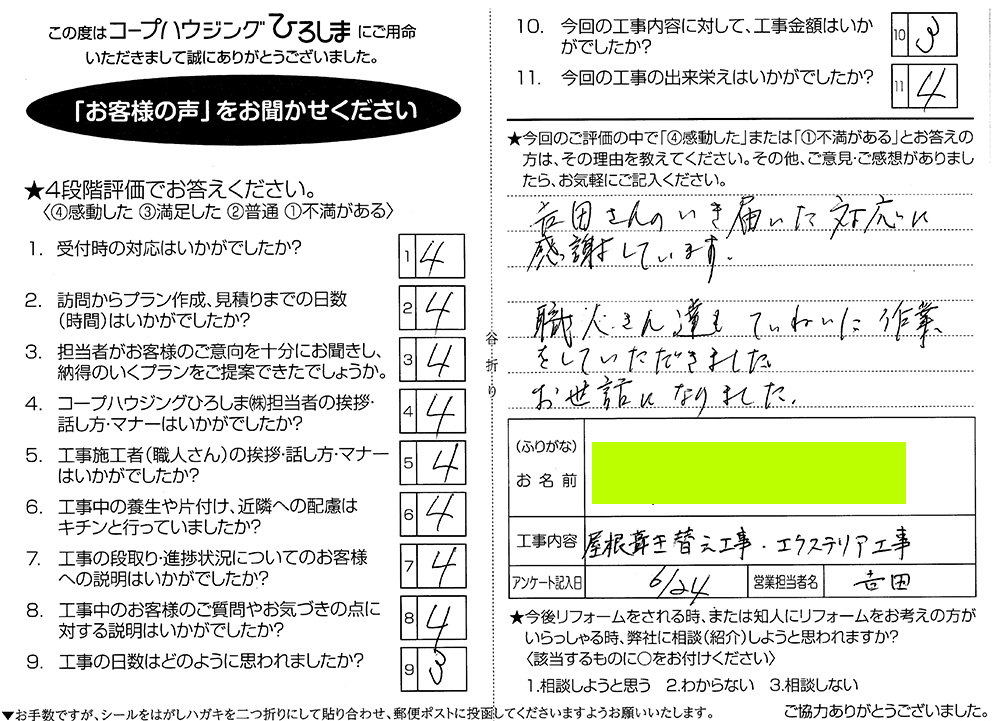 この度はコープハウジングひろしまにご用命
いただきまして誠にありがとうございました。
「お客様の声」をお聞かせください
★4段階評価でお答えください。
〈④感動した ③満足した ②普通 ①不満がある〉
1. 受付時の対応はいかがでしたか?
1 4
2. 訪問からプラン作成、見積りまでの日数
(時間)はいかがでしたか?
2 4
3. 担当者がお客様のご意向を十分にお聞きし、
納得のいくプランをご提案できたでしょうか。
3 4
4. コープハウジングひろしま㈱担当者の挨拶・
話し方・マナーはいかがでしたか?
4 4
5. 工事施工者(職人さん)の挨拶・話し方・マナー
はいかがでしたか?
5 4
6. 工事中の養生や片付け、近隣への配慮は
キチンと行っていましたか?
6 4
7. 工事の段取り・進捗状況についてのお客様
への説明はいかがでしたか?
7 4
8. 工事中のお客様のご質問やお気づきの点に
対する説明はいかがでしたか?
8 4
9. 工事の日数はどのように思われましたか?
9 3
▼お手数ですが、シールをはがしハガキを二つ折りにして貼り合わせ、郵便ポストに投函してくださいますようお願いいたします。
谷折り
10. 今回の工事内容に対して、工事金額はいか
がでしたか?
10 3
11. 今回の工事の出来栄えはいかがでしたか?
11 4
★今回のご評価の中で「④感動した」または「①不満がある」とお答えの
方は、その理由を教えてください。その他、ご意見・ご感想がありまし
たら、お気軽にご記入ください。
吉田さんのいき届いた対応に
感謝しています。
職人さん達もていねいな作業
をしていただきました。
お世話になりました。
(ふりがな)
お名前
工事内容 屋根葺き替え工事・エクステリア工事
アンケート記入日 6/24 営業担当者名 吉田
★今後リフォームをされる時、または知人にリフォームをお考えの方が
いらっしゃる時、弊社に相談(紹介)しようと思われますか?
〈該当するものに○をお付けください〉
1.相談しようと思う 2.わからない 3.相談しない
ご協力ありがとうございました。